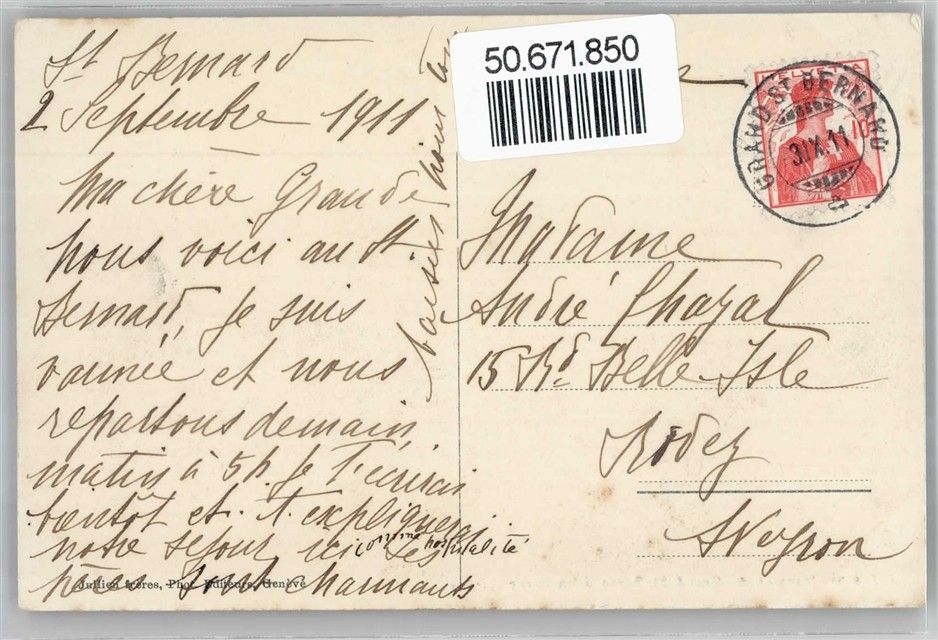 St Bernard
2 Septembre 1911
Ma chère Grande
nous voici au St.
Bernard, je suis
vannée et nous
repartons demain
matin à 5h. je t'écrirai
bientôt et t'expliquerai
notre séjour ici comme hospitalité
sont charmants
baisers nous
Jullien frères, Phot. Editeurs, Genève
50.671.850
HELVETIA
10
GRAND ST BERNARD
3.IX.11
Madame
André Chazal
15 Bd. Belle-Isle
Rodez
Aveyron